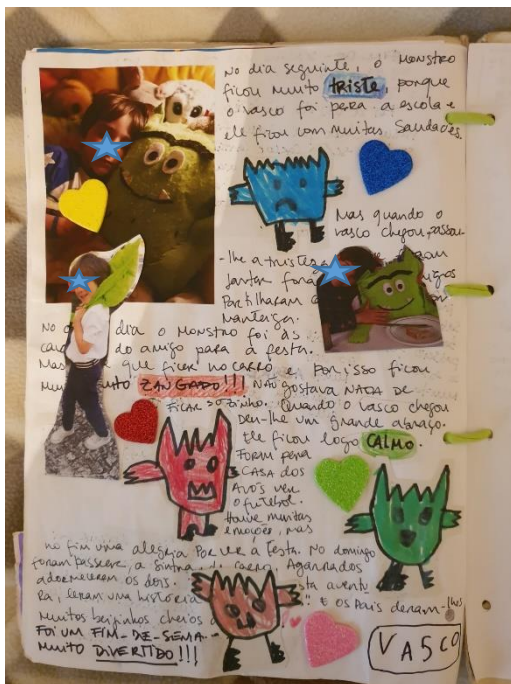 No dia seguinte, o MONSTRO
ficou muito TRISTE, porque
o Vasco foi para a escola e
ele ficou com muitas saudades.
Mas quando o
Vasco chegou, passou-
-lhe a tristeza
jantar fora
Partilharam
manteiga.
No dia o MONSTRO foi às
do amigo para a festa.
Mas que ficar no CARRO e por isso ficou
ZANGADO!!! NÃO gostava NADA DE
FICAR SOZINHO. Quando o Vasco chegou
Deu-lhe um grande abraço.
Ele ficou logo CALMO.
FORAM para
CASA DOS
AVÓS ver
o futebol.
Houve muitas
emoções, mas
no fim uma alegria POR ver A festa. No domingo
foram passear a Sintra, de carro. Agarrados
adormeceram os dois. sta aventu
ra, leram uma história !! E os PAIS deram-lhes
Muitos beijinhos cheios
FOI UM FIM-DE-SEMA-
MUITO DIVERTIDO!!!
VASCO